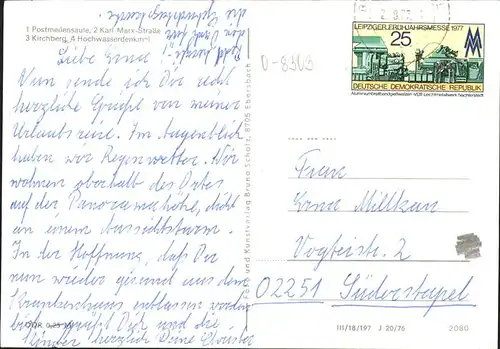 1 Postmeilensäule, 2 Karl-Marx-Straße
3 Kirchberg, 4 Hochwasserdenkmal
Liebe Erna!
Nun sende ich Dir recht
herzliche Grüße von meiner
Urlaubsreise. Im Augenblick
haben wir Regenwetter. Wir
wohnen oberhalb des Ortes
auf der Panoramahöhe, dicht
an einem Aussichtsturm.
In der Hoffnung, daß Du
nun wieder gesund aus dem
Krankenhaus entlassen worden
bist, grüßt Dich und die
Kinder herzlich Deine
DDR 0,25 M
Foto und Kunstverlag Bruno Scholz, 8705 Ebersbach
D-8303
LEIPZIGER FRÜHJAHRSMESSE 1977
25
DEUTSCHE DEMOKRATISCHE REPUBLIK
Aluminiumbreitbandgießwalzen-VEB Leichtmetallwerk Nachterstedt
Frau
Erna Millkau
Vogteistr. 2
02251 Süderstapel
III/18/197 J 20/76 2080